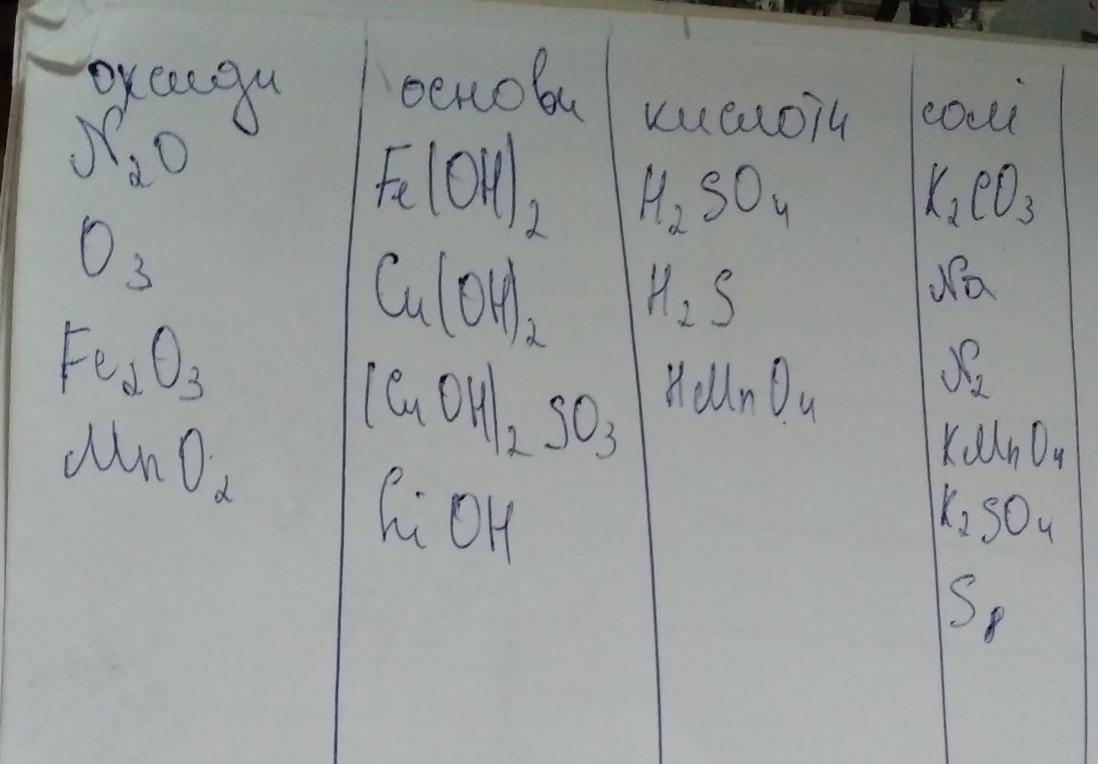 оксиди основи кислоти солі
N₂O Fe(OH)₂ H₂SO₄ K₂CO₃
O₃ Cu(OH)₂ H₂S Na
Fe₂O₃ (CuOH)₂SO₃ HMnO₄ N₂
MnO₂ LiOH KMnO₄
K₂SO₄
S₈